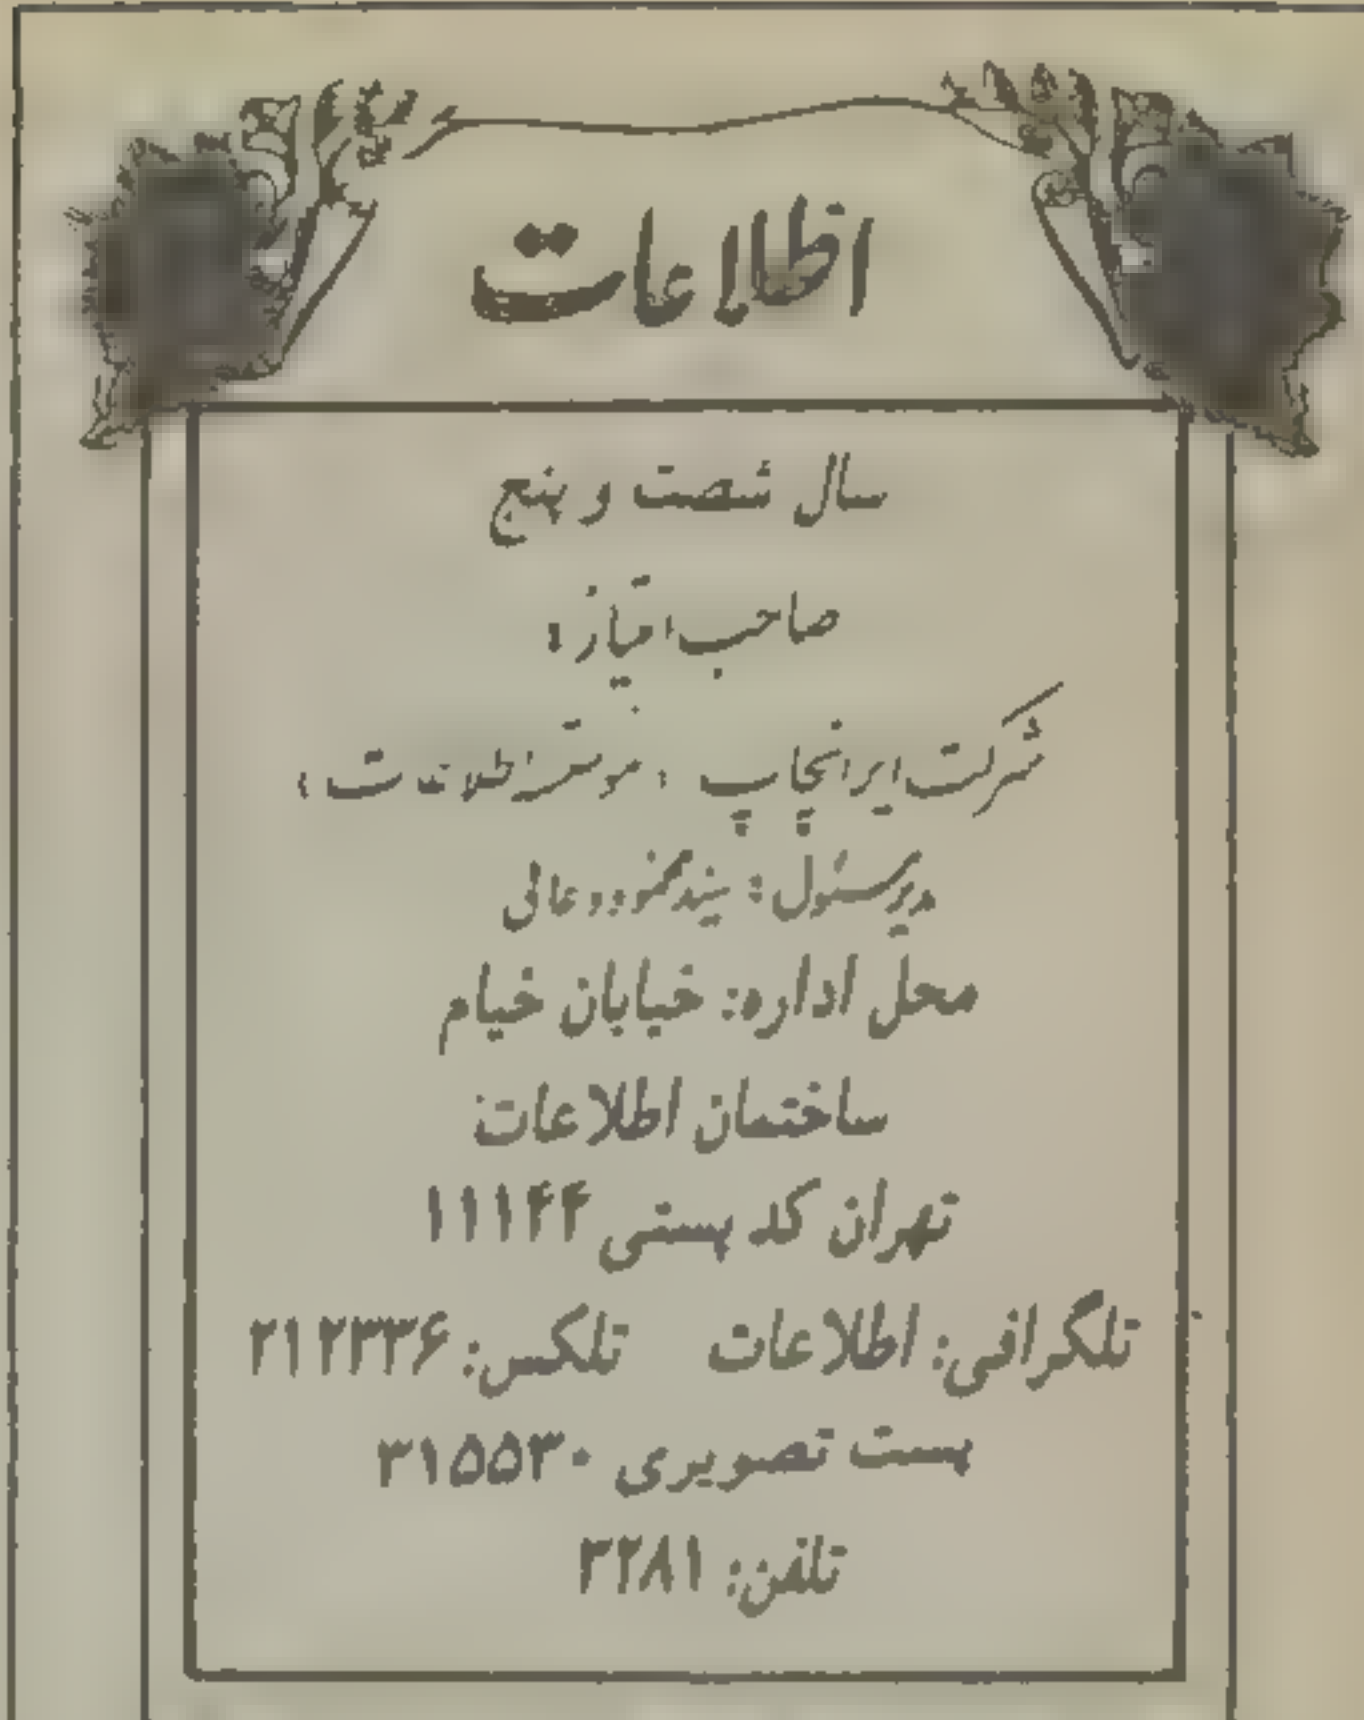 اطلاعات
سال شصت و پنج
صاحب امتیاز:
شرکت ایرانچاپ (موسسه اطلاعات)
مدیر مسئول: سید محمود دعائی
محل اداره: خیابان خیام
ساختمان اطلاعات
تهران کد پستی ۱۱۱۴۴
تلگرافی: اطلاعات تلکس: ۲۱۲۳۳۶
پست تصویری ۳۱۵۵۳۰
تلفن: ۳۲۸۱